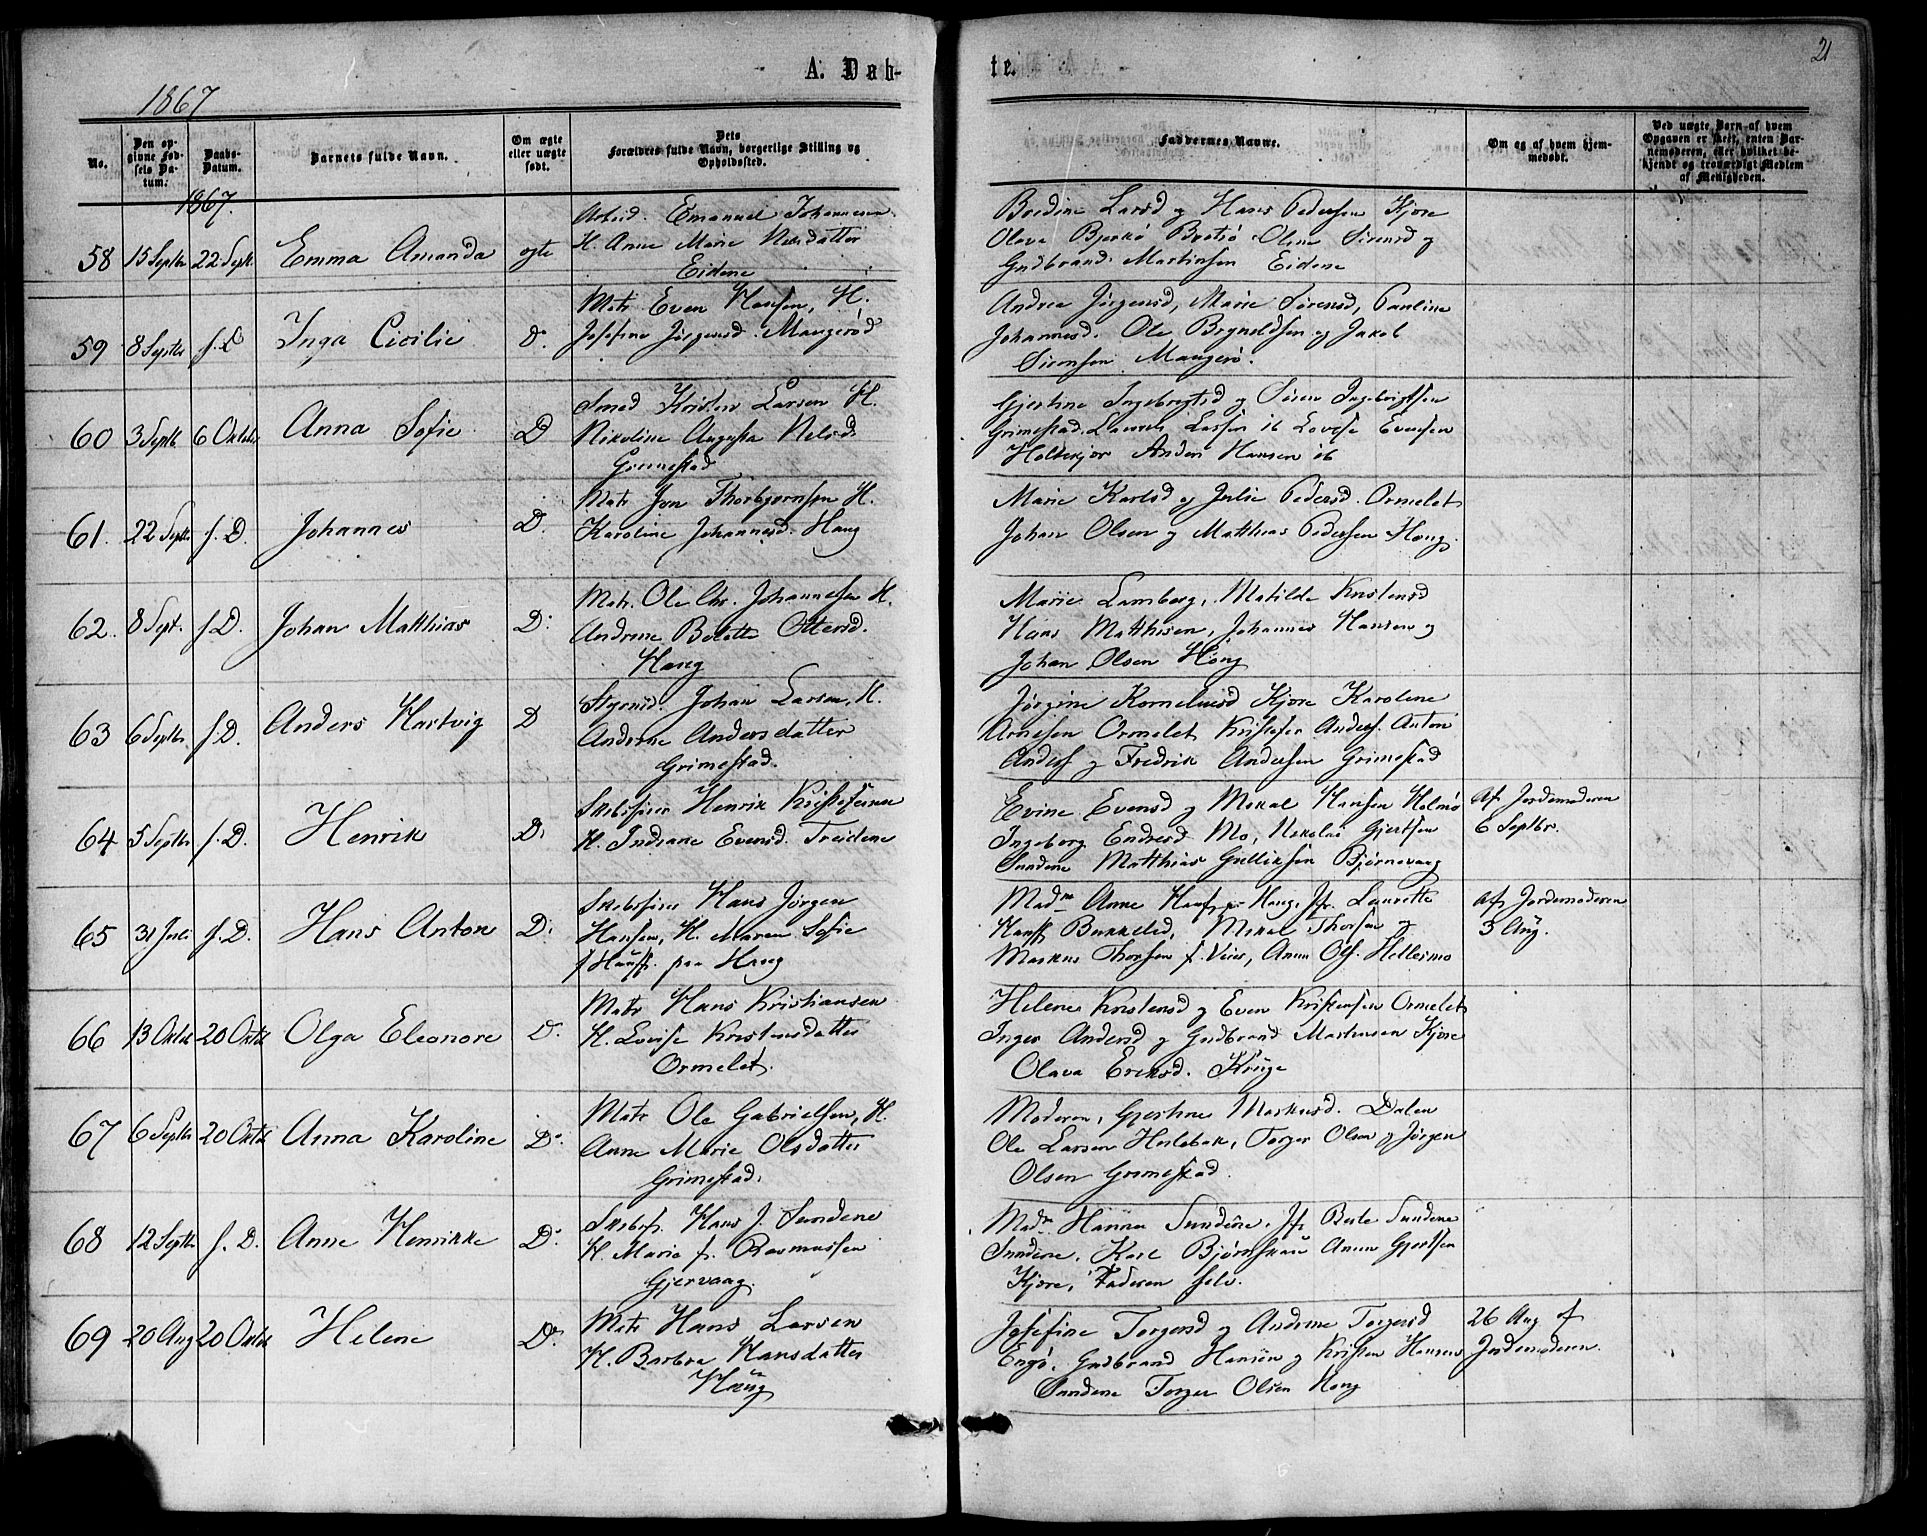 21
A. Døb-
te.
1867
No.
Den op-
givne Fød-
sels Da-
tum.
Daabs-
Datum.
Barnets fulde Navn.
Om ægte
eller uægte
født.
Dets
Forældres fulde Navn, borgerlige Stilling og
Opholdssted.
Faddernes Navne.
Om og af hvem hjem-
medøbt.
Ved uægte Barn af hvem
Opgaven er skeet, enten Bar-
nemoderen, eller hvilket be-
kjendt og troværdigt Medlem
af Menigheden.
1867.
58 15 Septbr 22 Sept. Emma Amanda ægte
Arbeid. Emanuel Johannesen
H. Anne Marie Nelsdatter
Eidene
Bordine Larsd og Hans Pedersen Kjøre
Olava Bjerkø Brotsø Olene Sørensd og
Gudbrand Martinsen Eidene
59 8 Septbr s. D Inga Cicilie D.
Matr Even Hansen, H.
Josefine Jørgensd. Maugerød
Andrea Jørgensd, Marie Sørensd, Pauline
Johannesd. Ole Brynildsen og Jakob
Sørensen Maugerø.
60 3 Septb 6 Oktob Anna Sofie D
Smed Kristen Larsen H.
Nikoline Augusta Nelsd.
Grimestad
Gjertine Ingebrigtsd og Søren Ingebrigtsen
Grimestad. Laurets Larsen ib Lovise Evensen
Holtekjær Anders Hansen ib
61. 22 Septb s. D. Johannes D.
Matr Jon Thorbjørnsen H.
Karoline Johannesd. Haug
Marie Karlsd og Julie Pedersd. Ormelet
Johan Olsen og Matthias Pedersen Haug.
62. 8 Sept. s. D. Johan Matthias D.
Matr. Ole Chr. Johannesen H.
Andrine Bolette Ottersd.
Haug
Marie Lamberg, Matilde Kristensd
Hans Mathisen, Johannes Hansen og
Johan Olsen Haug
63 6 Septbr s. D. Anders Hartvig D
Styrmd. Johan Larsen, H.
Andrine Andersdatter
Grimestad.
Jørgine Kornelinsd Kjøre Karoline
Arnesen Ormelet Kristofer Anders. Anton
Anders og Fredrik Andersen Grimestad
64 5 Septbr s. D. Henrik D.
Skibsfører Henrik Kristofersen
H. Indiane Evensd. Treidene
Evine Evensd og Mikal Hansen Holmø
Ingeborg Endresd Mo, Nikolai Gjertsen
Sundene Matthias Gulliksen Bjørnevaag
Af Jordemoderen
6 Septbr.
65 31 Juli s. D. Hans Anton D.
Skibsfører Hans Jørgen
Hansen, H. Maren Sofie
f Hanss. paa Haug
Madm Anne Hanss Haug, Jfr. Laurette
Hanss Bukkelid, Mikal Thorsen og
Markus Thorsen f. Veier, Anun Ols. Hellesmo
Af Jordemoderen
3 Aug.
66 13 Oktob 20 Oktob Olga Eleonore D.
Matr Hans Kristiansen
H. Lovise Kristensdatter
Ormelet.
Helene Kristensd og Even Kristensen Ormelet
Inger Andersd og Gudbrand Martinsen Kjøre
Olava Eriksd. Kruge
67 6 Septbr 20 Oktob Anna Karoline D.
Matr Ole Gabrielsen, H.
Anne Marie Olsdatter
Grimestad.
Moderen, Gjertine Markusd. Dalen
Ole Larsen Herlebak, Torger Olsen og Jørgen
Olsen Grimestad.
68 12 Septbr s. D. Anne Henrikke D.
Skibsf. Hans J. Sundene
H. Marie f. Rasmussen
Gjervaag.
Madm Hanna Sundene, Jfr Berte Sundene
Sundene, Karl Bjørnskau Anun Gjertsen
Kjøre, Faderen selv.
69 20 Aug 20 Oktob Helene D.
Matr Hans Larsen
H. Barbra Hansdatter
Haug
Josefine Torgersd og Andrine Torgersd
Engø. Gudbrand Hansen og Kristen Hansen
Sundene Torger Olsen Haug
26 Aug af
Jordemoderen.